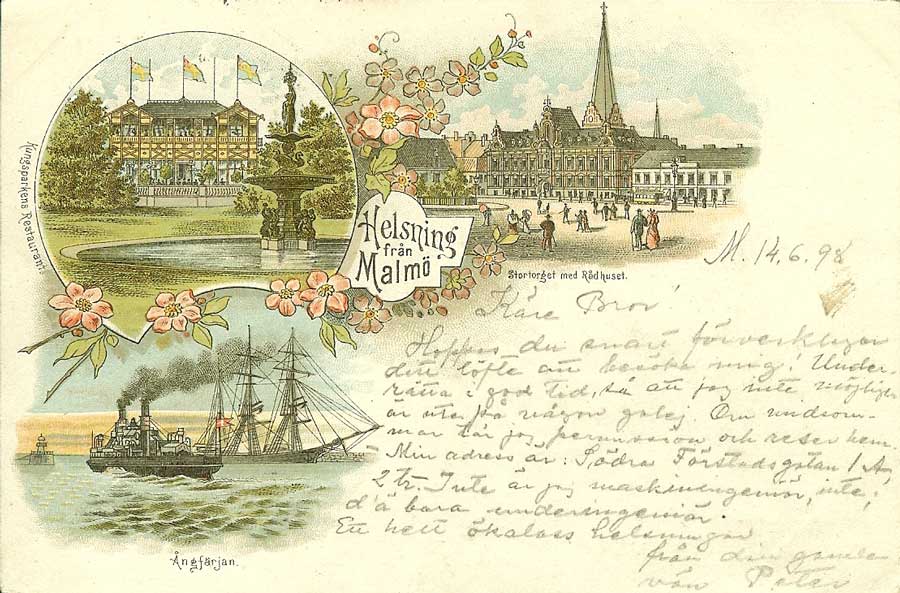 Kungsparkens Restaurant.
Helsning
från
Malmö
Stortorget med Rådhuset.
Ångfärjan.
M. 14.6.98
Käre Bror!
Hoppas du snart förverkligar
ditt löfte att besöka mig! Under-
rätta i god tid, så att jag inte möjligen
är ute på någon galej. Om midsom-
mar får jag permission och reser hem.
Min adress är: Södra Förstadsgatan 1 A,
2 tr. Inte är jag maskiningeniör, inte;
d'ä bara underingeniör.
En hett helsningar
från din gamle
vän Peter